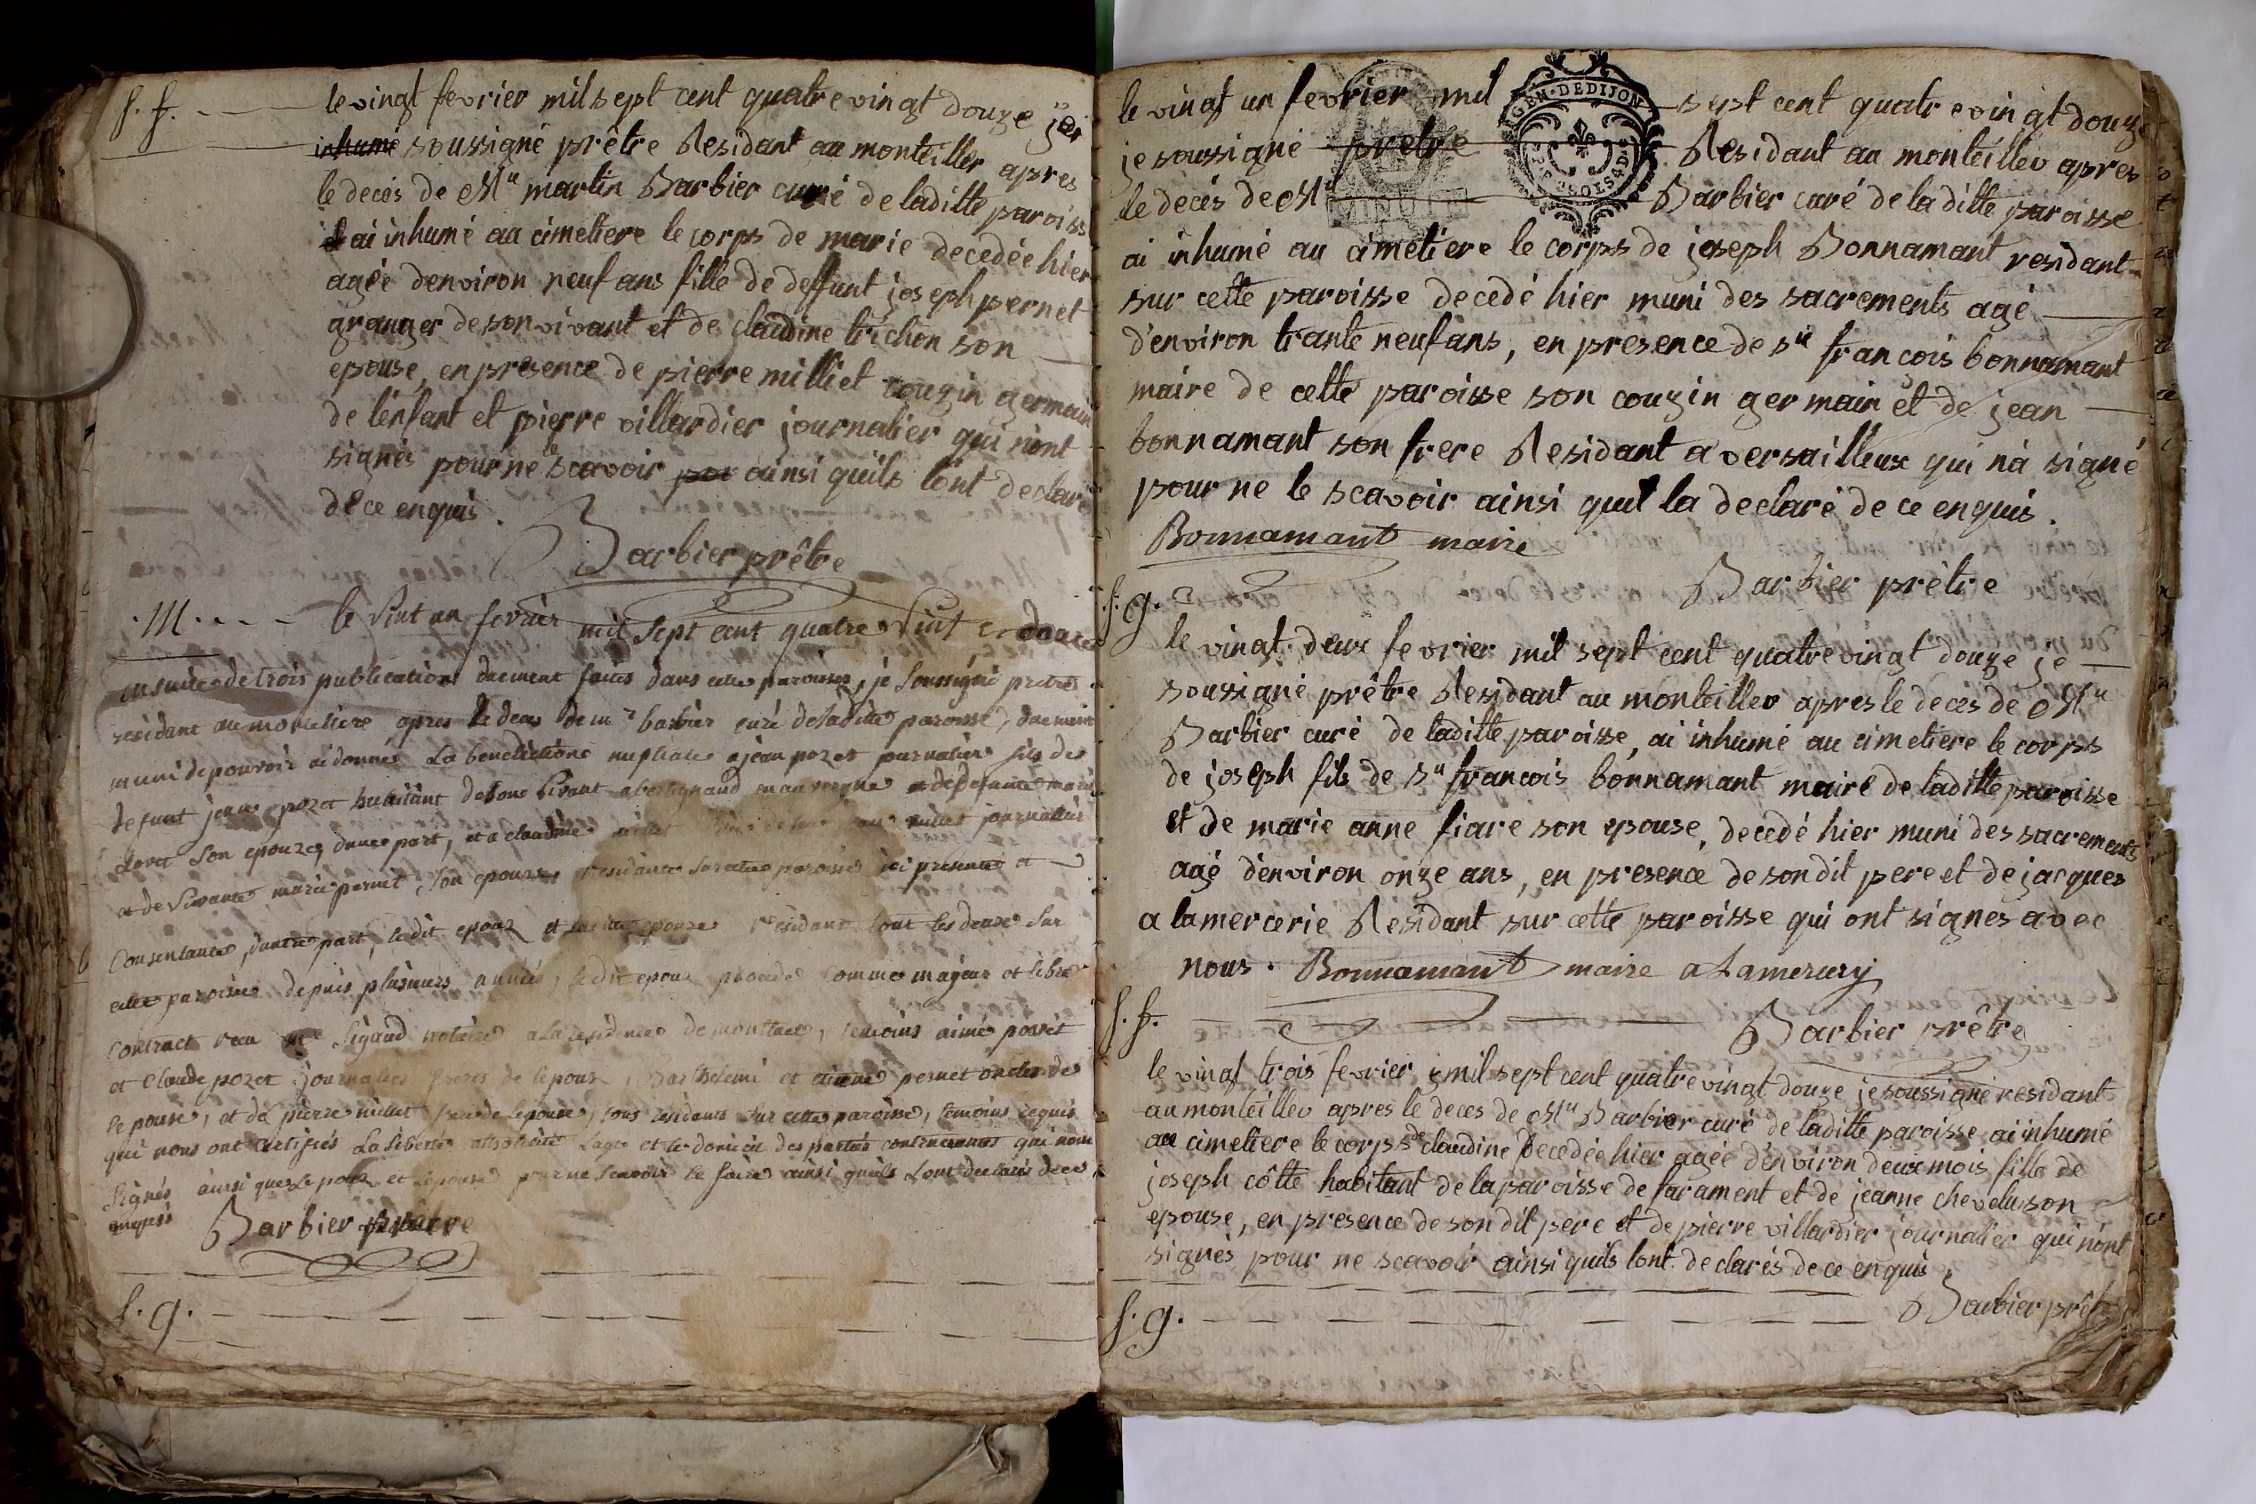 f. f.
le vingt fevrier mil sept cent quatre vingt douze je
inhumé soussigné prêtre Residant au monteiller apres
le decés de Mr martin Barbier curé de laditte paroisse
ai inhumé au cimetiere le corps de marie decedée hier
agée denviron neuf ans fille de deffunt joseph pernet
granger de son vivant et de claudine trichon son
epouse, en presence de pierre milliet couzin germain
de lenfant et pierre villardier journalier qui nont
signés pour ne le scavoir par ainsi quils lont declaré
de ce enquis.
Barbier prêtre
M.
le vint un fevrier mil sept cent quatre vint et douze
en suite de trois publication duement faites dans cette paroisse, je soussigné pretre
residant au monteliere apres le deces de mr barbier curé de ladite paroisse, duement
muni de pouvoir ai donné La benediction nuptiale a jean pozet journalier fils de
defunt jean pozet habitant de son vivant en auvergne et de defunte marie
son epouze, dune part, et a claudine journalier
et de vivante marie pernet, son epouse, residante sur cette paroisse ici presente et
Consentante, dautre part, ledit epoux et ladite epouze residant tout les deux sur
cette paroisse depuis plusieurs années, ledit epoux comme majeur et libre
Contract recu Sigaud notaire a la residence de montluel, temoins aimé
et Claude pozet journalier freres de lepoux, Barthelemi et pernet oncles de
lepouse, et de pierre millet frere de lepouse, tous residants sur cette paroisse, temoins requis
qui nous ont certifiés La liberté Lage et le domicile des parties contractantes qui nont
Signés ainsi que lepoux et lepouse pour ne scavoir le faire ainsi quils Lont declarés de ce
enquis Barbier prêtre
f. g.
le vingt un fevrier mil sept cent quatre vingt douze
GEN. DE DIJON
je soussigné prêtre Residant au monteiller apres
le decés de Mr Barbier curé de laditte paroisse
ai inhumé au cimetiere le corps de joseph Bonnamant residant
sur cette paroisse decedé hier muni des sacrements agé
d'environ trante neuf ans, en presence de sr francois bonnamant
maire de cette paroisse son couzin germain et de jean
bonnamant son frere Residant a versailleux qui na signé
pour ne le scavoir ainsi quil la declaré de ce enquis.
Bonnamant maire
Barbier prêtre
f. g.
le vingt deux fevrier mil sept cent quatre vingt douze je
soussigné prêtre Residant au monteiller apres le decés de Mr
Barbier curé de laditte paroisse, ai inhumé au cimetiere le corps
de joseph fils de sr francois bonnamant maire de laditte paroisse
et de marie anne fiare son epouse, decedé hier muni des sacrements
agé denviron onze ans, en presence de son dit pere et de jacques
a lamercerie Residant sur cette paroisse qui ont signes avec
nous. Bonnamant maire a Lamercery
f. f.
Barbier prêtre
le vingt trois fevrier mil sept cent quatre vingt douze je soussigné residant
au monteiller apres le deces de Mr Barbier curé de laditte paroisse ai inhumé
au cimetiere le corps de claudine decedée hier agée denviron deux mois fille de
joseph côtte habitant de la paroisse de farament et de jeanne chevelu son
epouse, en presence de son dit pere et de pierre villardier journalier qui nont
signés pour ne scavoir ainsi quils lont declarés de ce enquis
Barbier prêtre
f. g.